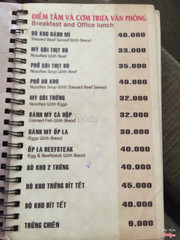 ĐIỂM TÂM VÀ CƠM TRƯA VĂN PHÒNG
Breakfast and Office lunch
BÒ KHO BÁNH MÌ 40.000
Stewed Beef Served With Bread
MỲ GÓI THỊT BÒ 33.000
Noodles With Beef
PHỞ GÓI THỊT BÒ 35.000
Noodles Soup With Beef
PHỞ BÒ KHO 40.000
Noodles Stewed Beef Served With Bread
MỲ GÓI TRỨNG 32.000
Noodles With Eggs
BÁNH MÌ CÁ HỘP 32.000
Canned Fish With Bread
BÁNH MÌ ỐP LA 30.000
Eggs With Bread
ỐP LA BEEFSTEAK 40.000
Egg & Beefsteak With Bread
BÒ KHO 2 TRỨNG 40.000
BÒ KHO TRỨNG BÍT TẾT 45.000
BÒ KHO BÍT TẾT 40.000
TRỨNG CHIÊN 9.000